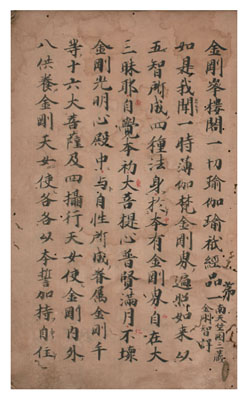 金剛峯樓閣一切瑜伽瑜祇經品第一
南天竺國三藏
金剛智譯
如是我聞一時薄伽梵金剛界遍照如來以
五智所成四種法身於本有金剛界自在大
三昧耶自覺本初大菩提心普賢滿月不壞
金剛光明心殿中与自性所成眷属金剛手
等十六大菩薩及四攝行天女使金剛内外
八供養金剛天女使各各以本誓加持自住